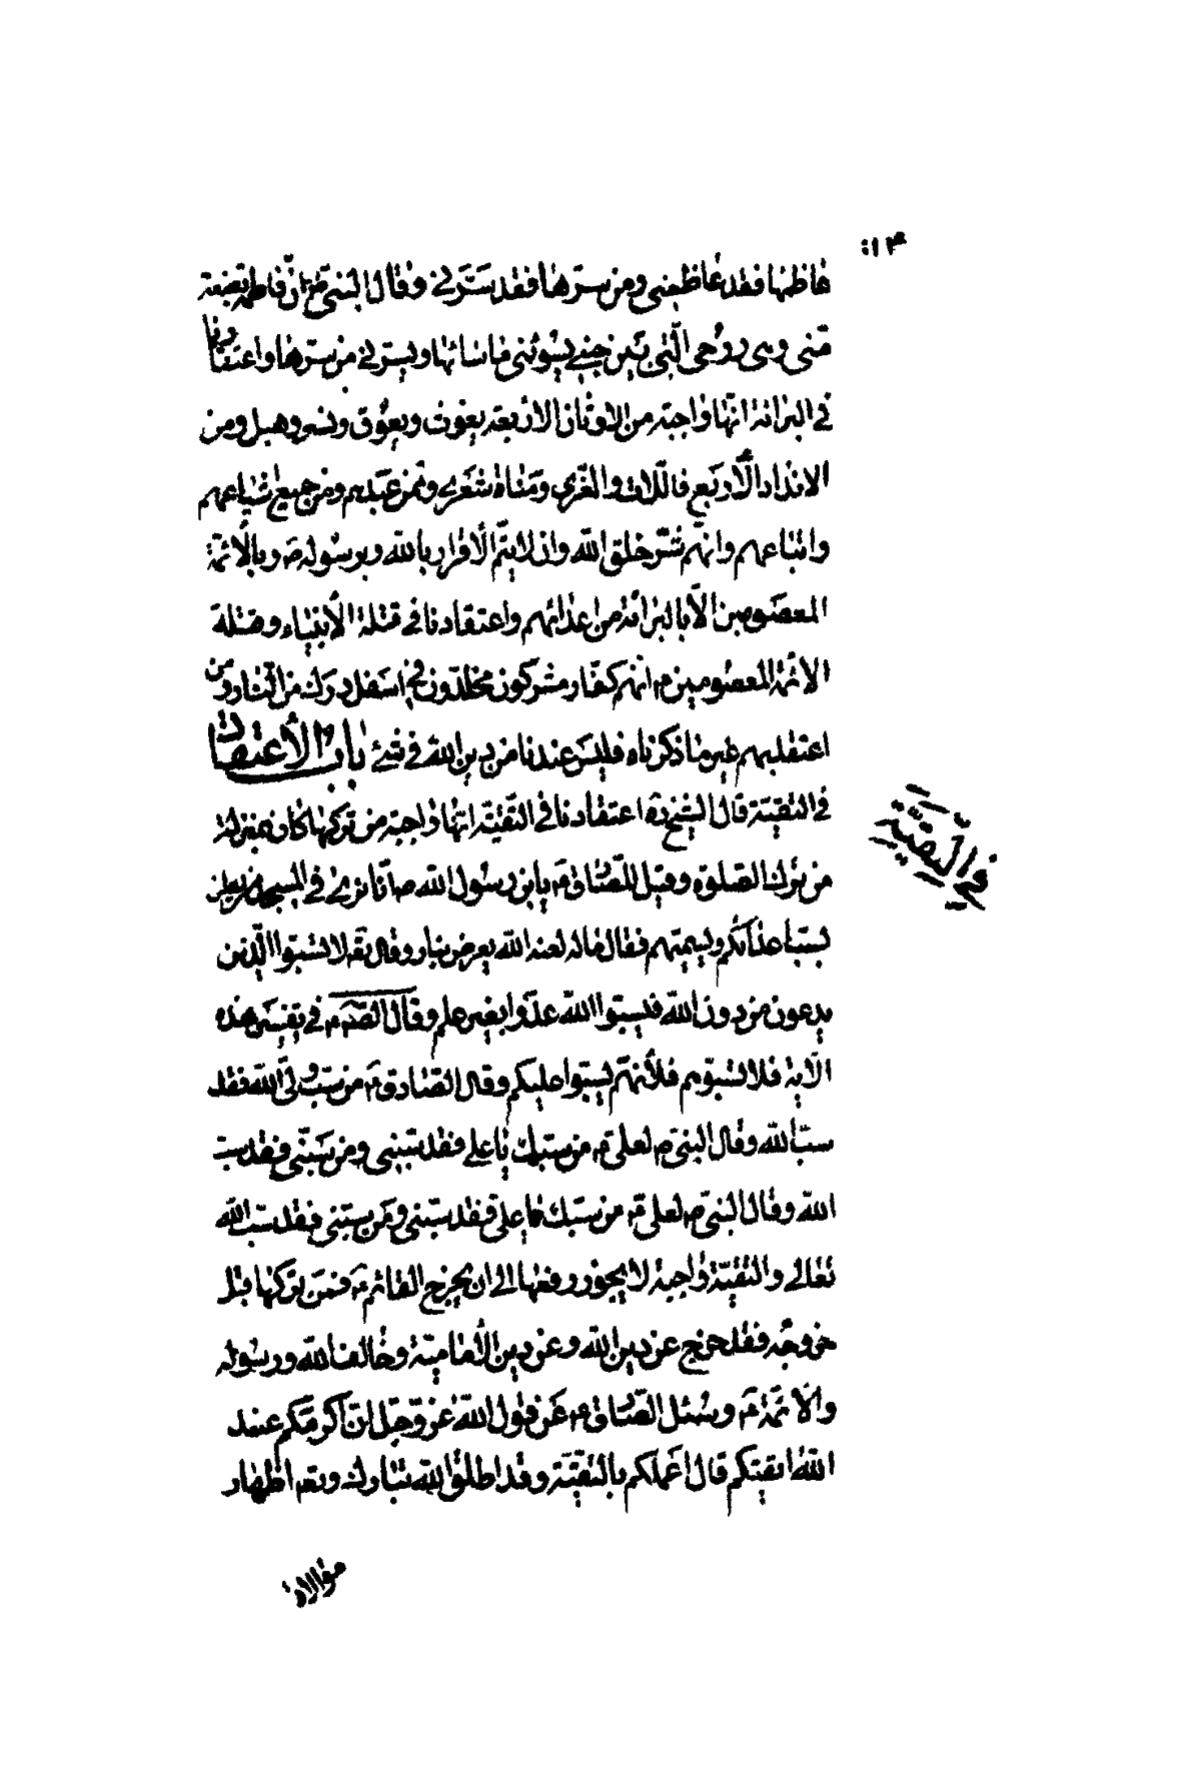 غاظها فقد غاظني ومن سرها فقد سرني وقال النبي ص ان فاطمة بضعة
مني وهي روحي التي بين جنبي يسوئني ما ساءها ويسرني من سرها واعتقادنا
في البرائة انها واجبة من الاوثان الاربعة يغوث ويعوق ونسر وهبل ومن
الانداد الأربع فاللات والعزى ومناة شعرى وممن عبدهم ومن جميع اشياعهم
واتباعهم وانهم شر خلق الله وانه لا يتم الأقرار بالله وبرسوله ص وبالأئمة
المعصومين الا بالبرائة من اعدائهم واعتقادنا في قتلة الأنبياء وقتلة
الائمة المعصومين م انهم كفار مشركون مخلدون في اسفل درك من النار ومن
اعتقد بهم غير ما ذكرناه فليس عندنا من دين الله في شئ باب الأعتقاد
في التقية قال الشيخ ره اعتقادنا في التقية انها واجبة من تركها كان بمنزلة
من ترك الصلوة وقيل للصادق م يا بن رسول الله ص انا نرى في المسجد من يعلن
بسب اعدائكم ويسميهم فقال ماله لعنه الله يعرض بنا وقال تع لا تسبوا الذين
يدعون من دون الله فيسبوا الله عدوا بغير علم وقال الصم م في تفسير هذه
الآية فلا تسبوهم فلأنهم يسبوا عليكم وقال الصادق م من سب ولى الله فقد
سب الله وقال النبي ص لعلى م من سبك يا على فقد سبني ومن سبني فقد سب
الله وقال النبي ص لعلى م من سبك يا على فقد سبني ومن سبني فقد سب الله
تعالى والتقية واجبة لا يجوز رفعها الى ان يخرج القائم م فمن تركها قبل
خروجه فقد خرج عن دين الله وعن دين الأمامية وخالف الله ورسوله
والائمة م وسئل الصادق م عن قول الله عز وجل ان اكرمكم عند
الله اتقيكم قال اعملكم بالتقية وقد اطلق الله تبارك وتع اظهار
في التقية
موالاة